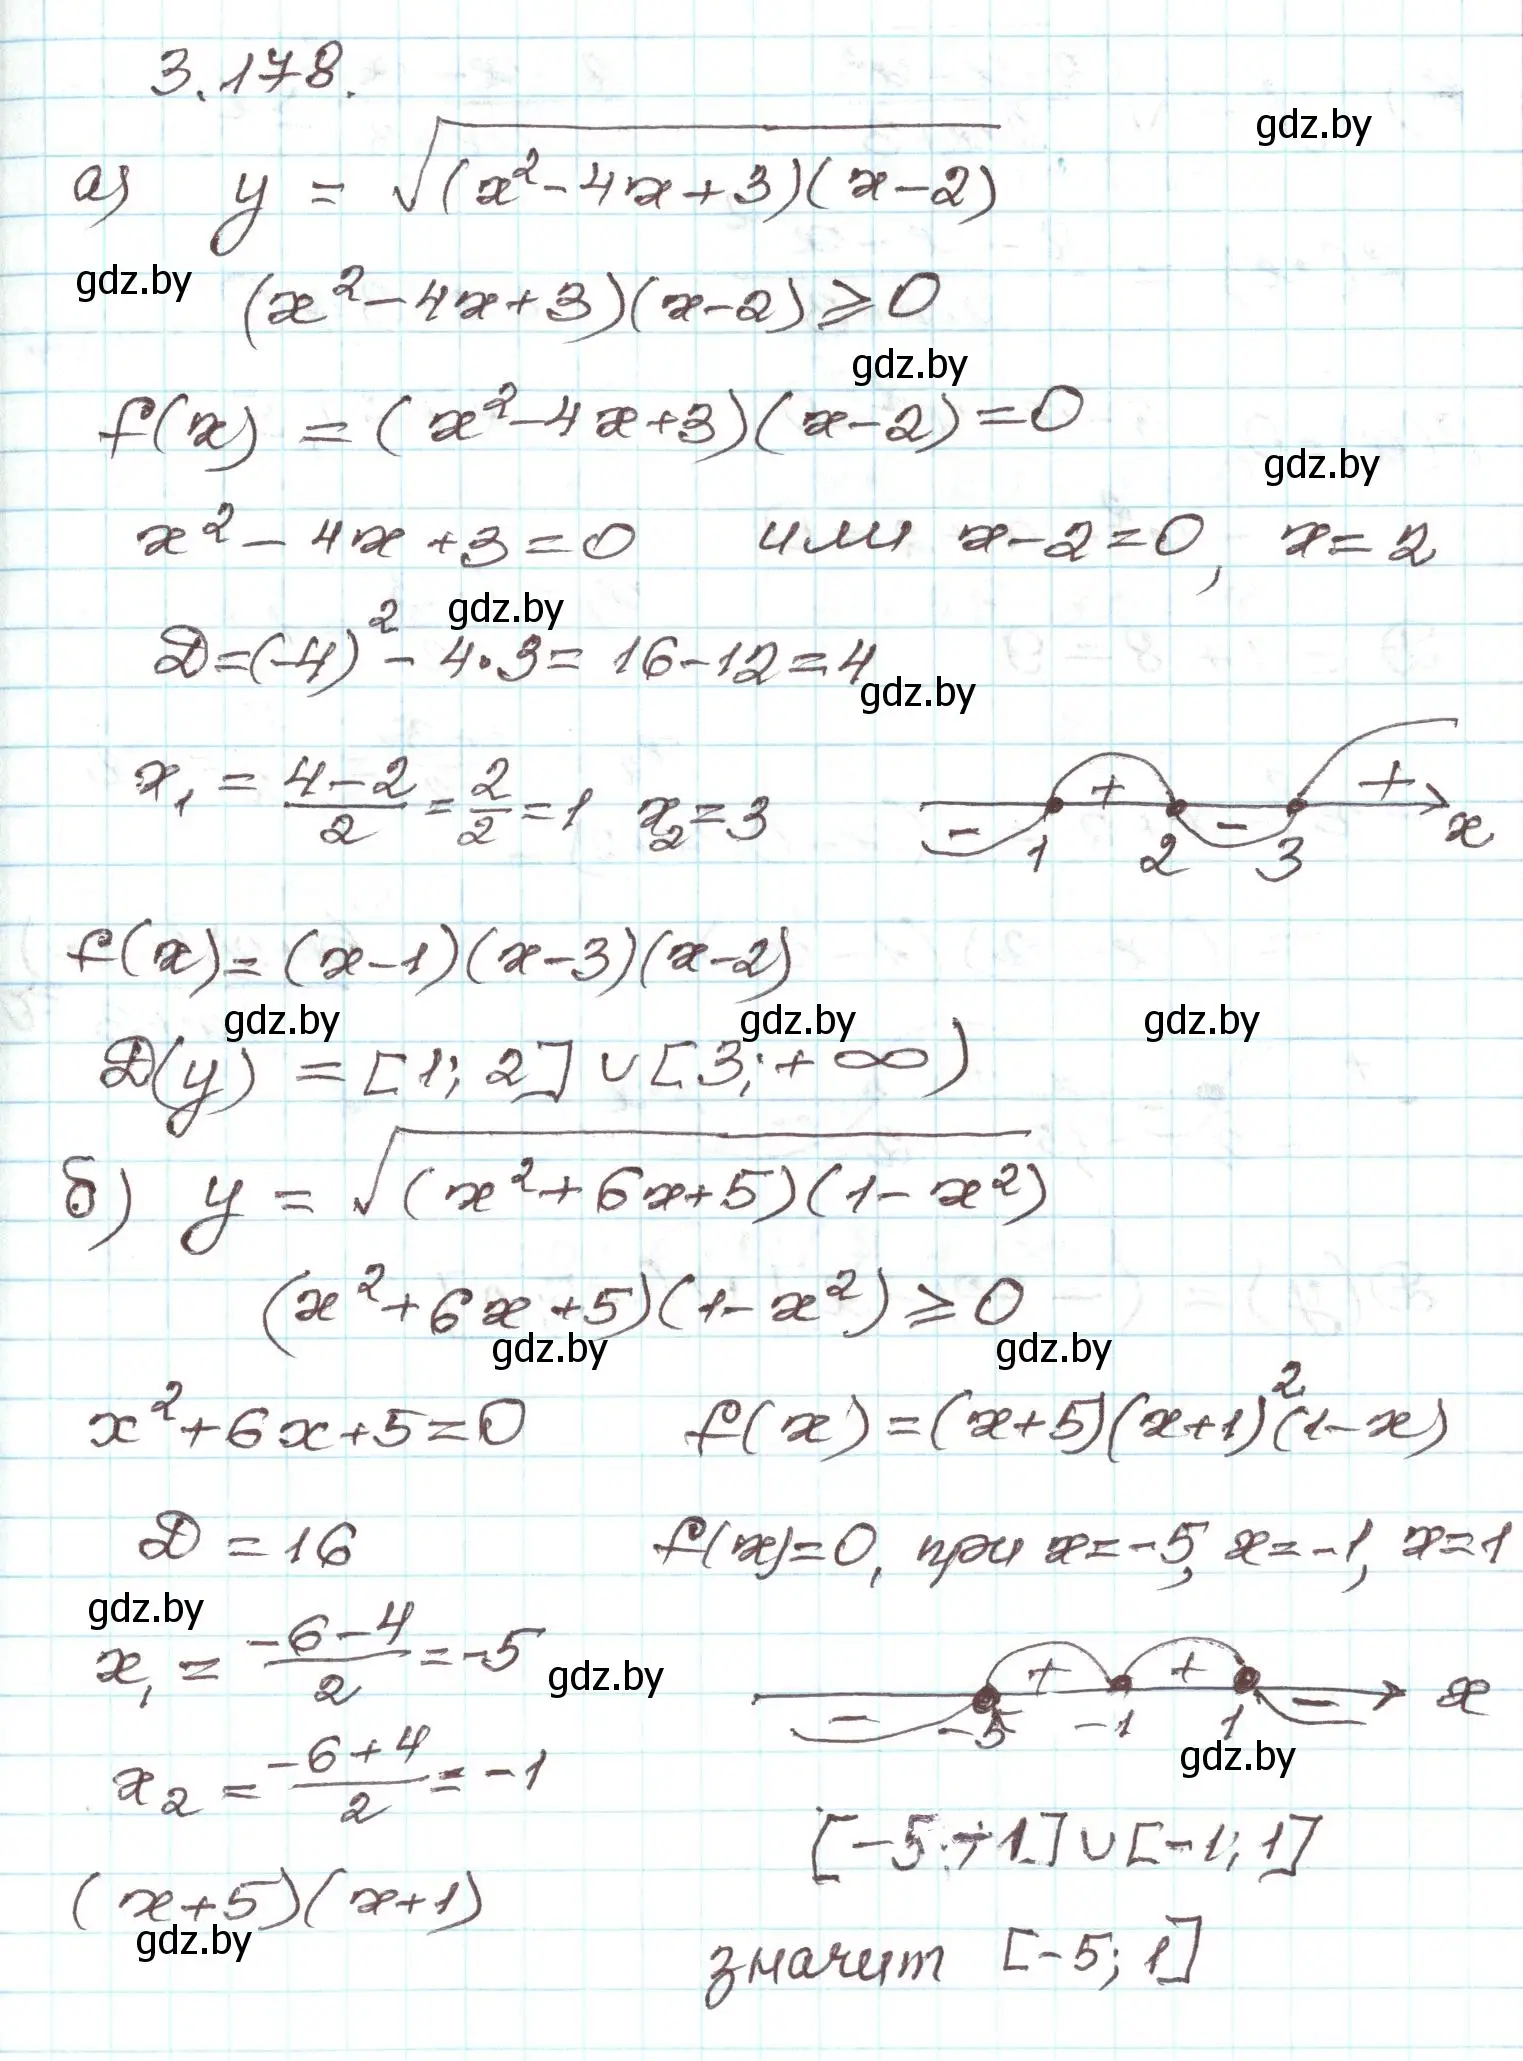 3.178.
gdz.by
а) y = √(x²-4x+3)(x-2)
gdz.by
(x²-4x+3)(x-2)⩾0
gdz.by
f(x) = (x²-4x+3)(x-2)=0
gdz.by
x²-4x+3=0 или x-2=0, x=2
gdz.by
D=(-4)²-4·3=16-12=4
gdz.by
x₁ = (4-2)/2 = 2/2 = 1 x₂=3
- + - + x
1 2 3
f(x)=(x-1)(x-3)(x-2)
gdz.by gdz.by gdz.by
D(y) = [1; 2] ∪ [3; +∞)
б) y = √(x²+6x+5)(1-x²)
(x²+6x+5)(1-x²)⩾0
gdz.by gdz.by
x²+6x+5=0 f(x)=(x+5)(x+1)²(1-x)
D=16 f(x)=0, при x=-5, x=-1, x=1
gdz.by
x₁ = (-6-4)/2 = -5
gdz.by
- + + - x
-5 -1 1
gdz.by
x₂ = (-6+4)/2 = -1
[-5; -1] ∪ [-1; 1]
(x+5)(x+1)
gdz.by
значит [-5; 1]